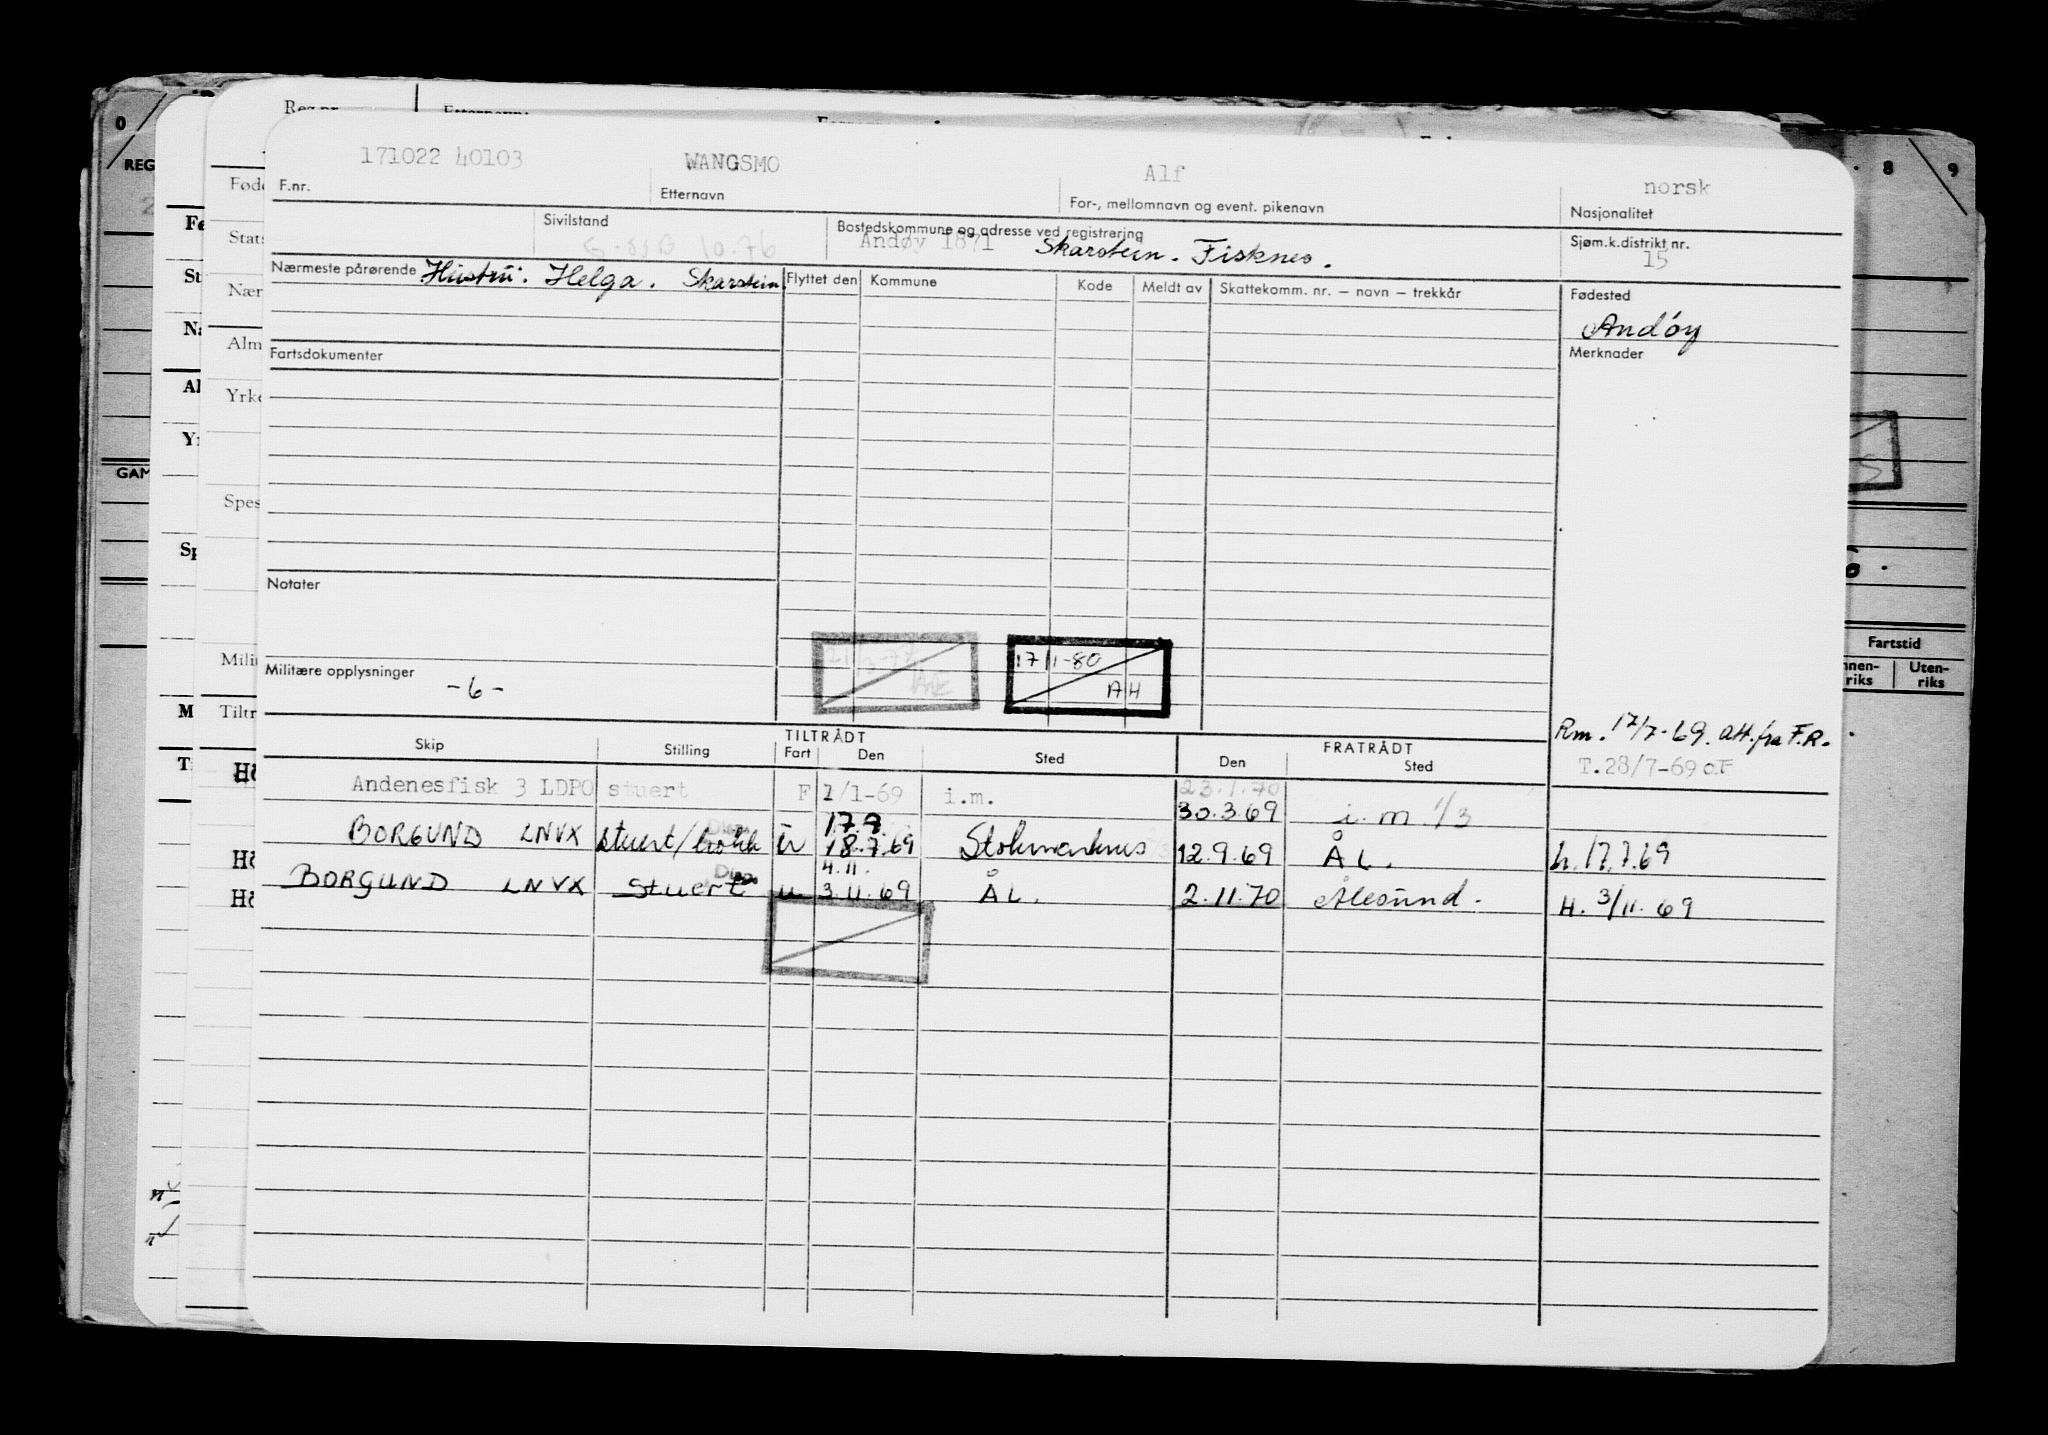 O 8 9
REG
Reg.nr. Etternavn: Fornavn
171022 40103 WANGSMO Alf norsk
F.nr. Etternavn For-, mellomnavn og event. pikenavn Nasjonalitet
Sivilstand Bostedskommune og adresse ved registrering Sjøm.k.distrikt nr.
10.76 Andøy 1871 Skarstein. Fisknes. 15
Nærmeste pårørende Hustru: Helga. Skarstein. Flyttet den Kommune Kode Meldt av Skattekomm. nr. – navn – trekkår Fødested
Andøy
Fartsdokumenter Merknader
Notater
17/1-80
AH
Militære opplysninger -6-
Fartstid
Innen-riks Uten-riks
Rm. 17/7-69. att. fra F.R.
TILTRÅDT FRATRÅDT
Skip Stilling Fart Den Sted Den Sted
T.28/7-69 OF
23.1.70
Andenesfisk 3 LDPO stuert F 1/1-69 i.m. 30.3.69 i.m 1/3
17.7.
BORGUND LNVX stuert/kokk U 18.7.69 Stokmarknes 12.9.69 ÅL. h.17.7.69
4.11.
BORGUND LNVX Stuert u 3.11.69 ÅL. 2.11.70 Ålesund. H. 3/11.69